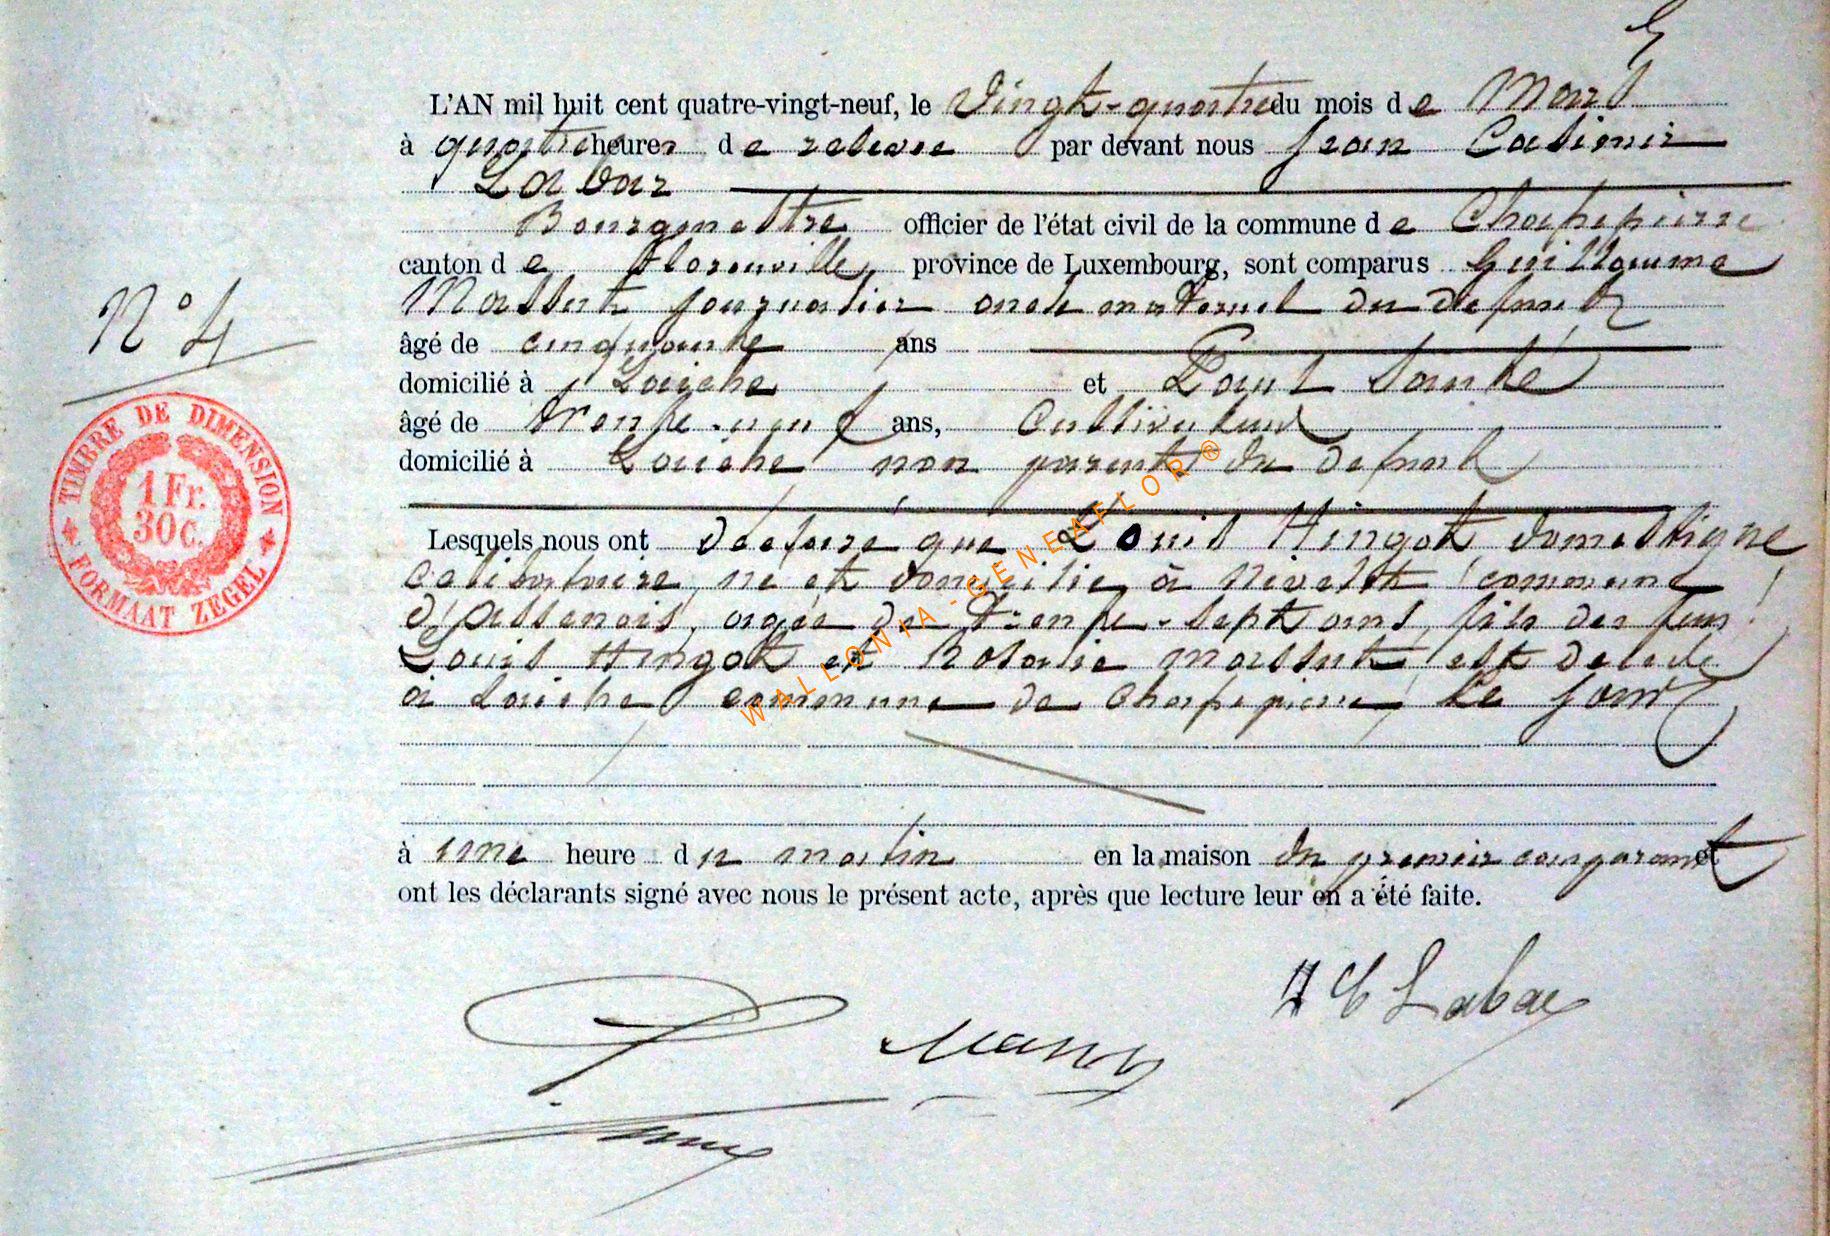 L'AN mil huit cent quatre-vingt-neuf, le Vingt-quatre du mois de Mars
à quatre heures de relevée par devant nous Jean Casimir
Labar
Bourgmestre officier de l'état civil de la commune de Chassepierre
canton de Florenville, province de Luxembourg, sont comparus Guillaume
Massut journalier oncle maternel du defunt
âgé de cinquante ans
domicilié à Laiche et Paul Santé
âgé de trente-neuf ans, Cultivateur
domicilié à Laiche non parent du defunt
Lesquels nous ont déclaré que Louis Hingot, domestique
celibataire, né et domicilié à commune
d'Assenois, agée de trente-sept ans, fils des feus
Louis Hingot et Rosalie Massut, est decedé
à Laiche commune de Chassepierre, ce jour
à une heure du matin en la maison du premier comparant et
ont les déclarants signé avec nous le présent acte, après que lecture leur en a été faite.
N° 4
TIMBRE DE DIMENSION
1 Fr.
30 C.
FORMAAT ZEGEL
WALLONIA-GENEAFLOR®
J C Labar